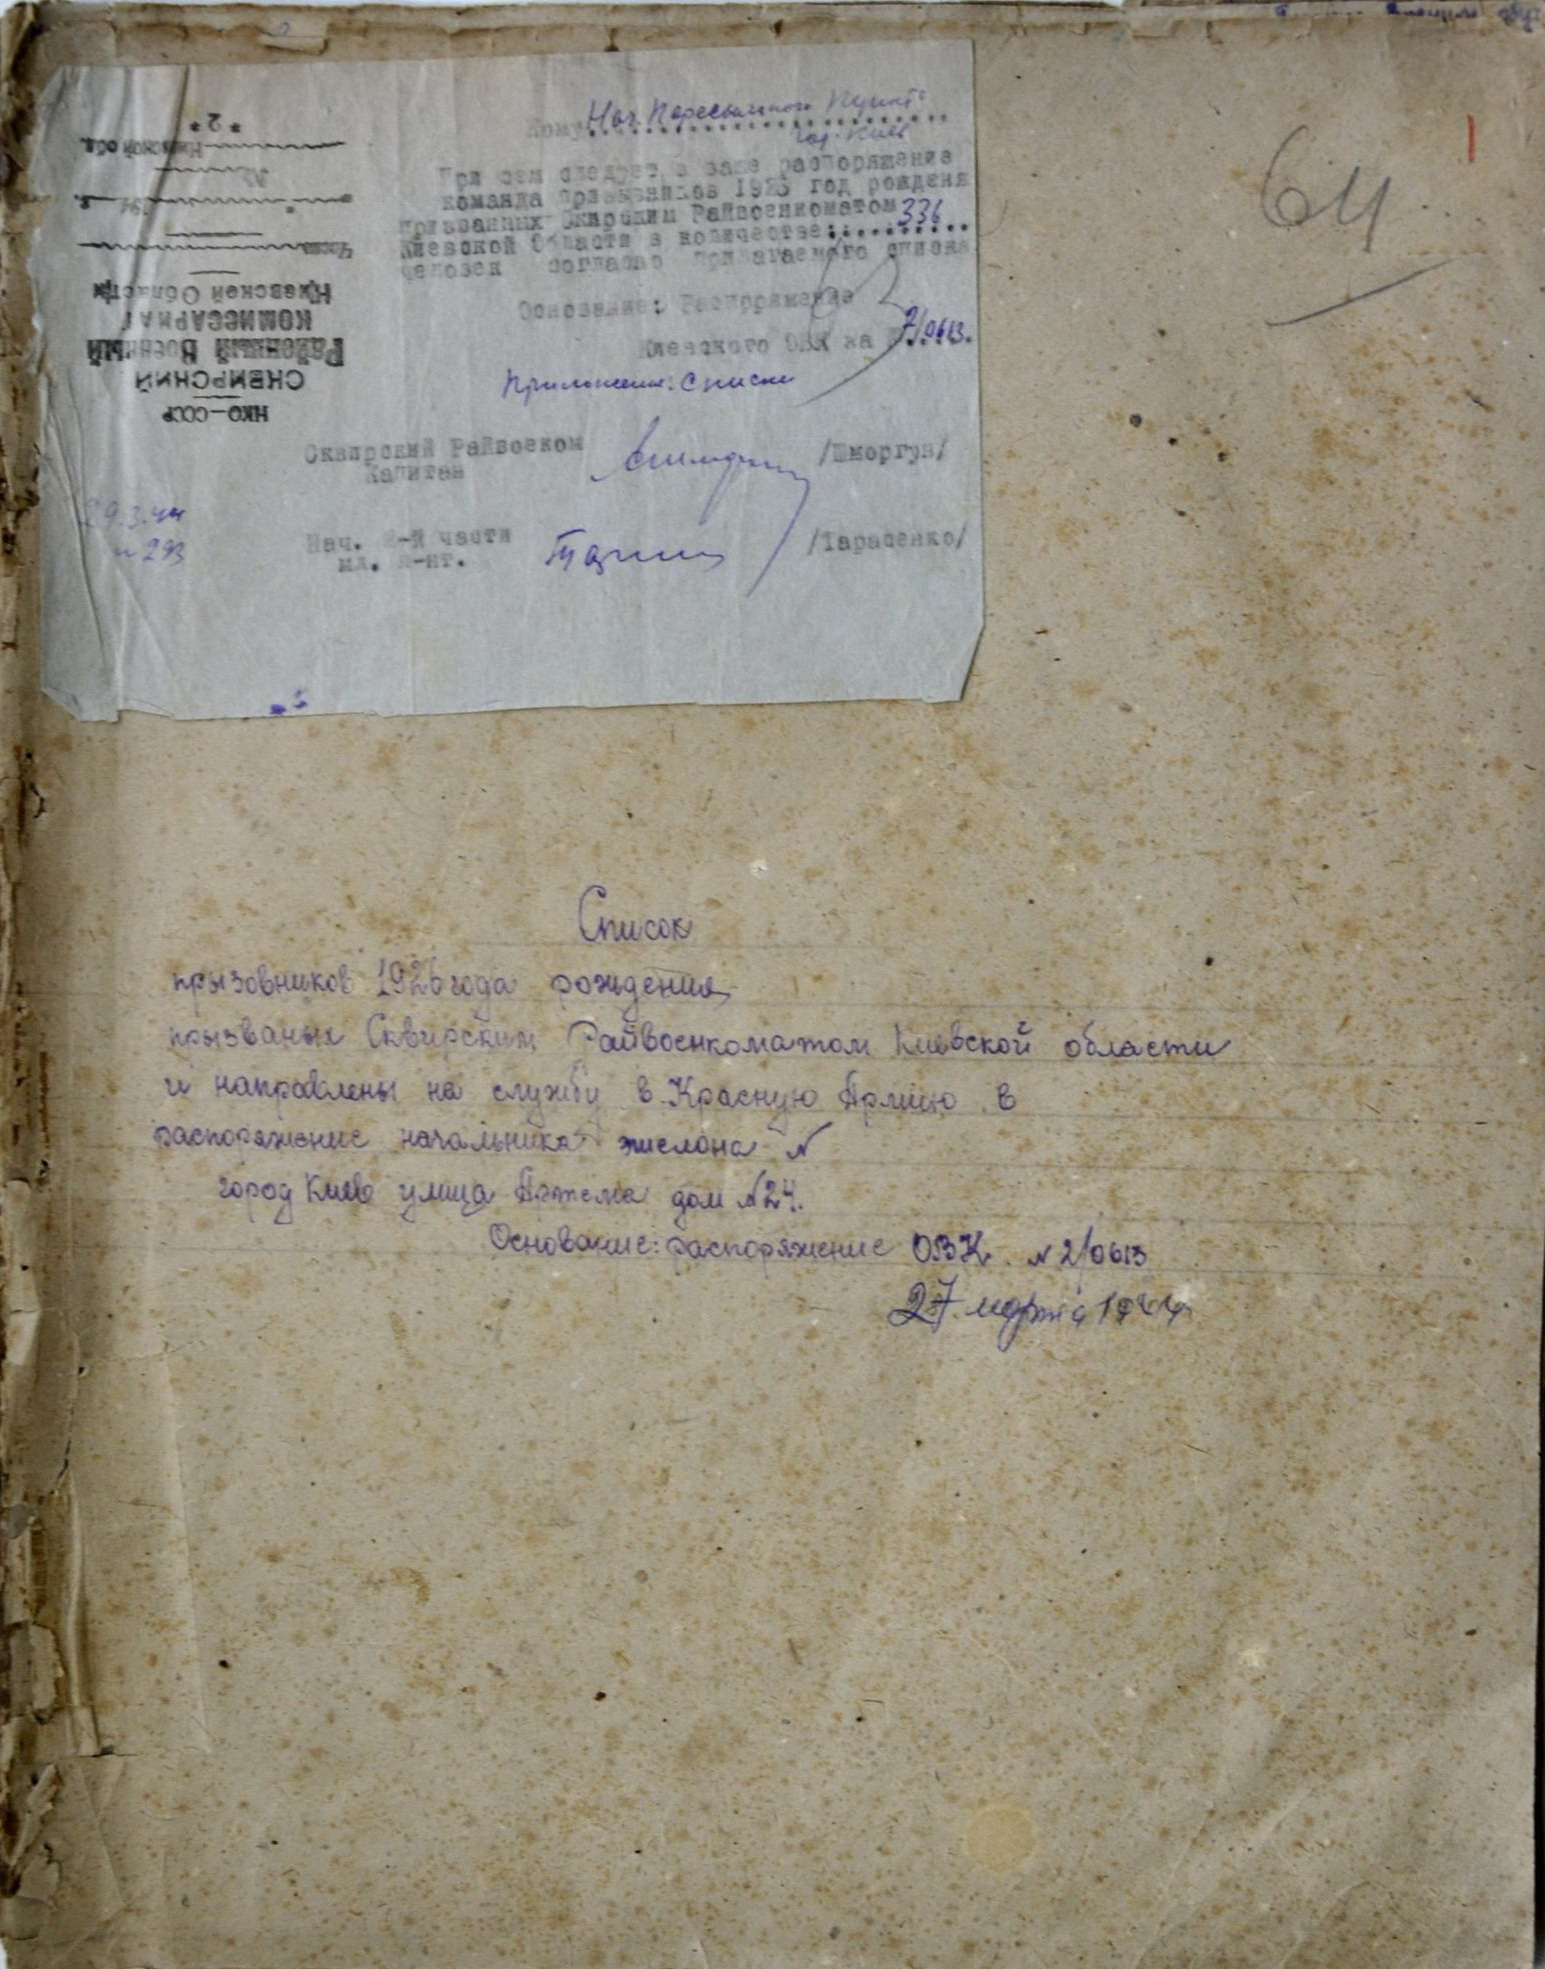 Кому Нач. Пересыльного Пункта
гор. Киев
При сем следует в ваше распоряжение
команда призывников 1926 год рожденя
призванных Сквирским Райвоенкоматом
Киевской Области в количестве 336
человек согласно прилагаемого списка
Основание: Распоряжение
Киевского ОВК за № 2/0613.
Приложение: список
Сквирский Райвоенком
Капитан /Шморгун/
Нач. 2-й части
мл. л-нт. /Тарасенко/
НКО—СССР
СКВИРСКИЙ
Районный Военный
КОМИССАРИАТ
Киевской Области
Часть
194 г.
№
Киевской обл.
*2*
29.3.44
№ 293
64
1
Список
прызовников 1926 года рождения
прызваных Сквирским Райвоенкоматом Киевской области
и направлены на службу в Красную Армию в
распоряжение начальника эшелона №
город Киев улица Артема дом №24.
Основание: распоряжение ОВК. № 2/0613
27 марта 1944